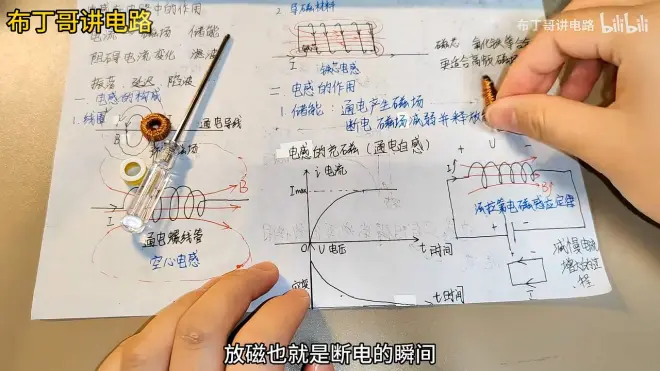 布丁哥讲电路
布丁哥讲电路 bilibili
电流 磁场 储能
阻碍电流变化 滤波
振荡 延迟 陷波
一 电感的构成
1. 线圈
通电导线
B
I
通电螺线管
空心电感
2. 导磁材料
I
铁芯电感
磁芯 氧化铁等合金
更适合高频
二 电感的作用
1. 储能：通电产生磁场
断电磁场减弱并释放
电感的充磁（通电自感）
i 电流
Imax
0
t 时间
U 电压
t 时间
+ U -
I
法拉第电磁感应定律
+ -
减慢电流
增大的过
程
I
放磁也就是断电的瞬间